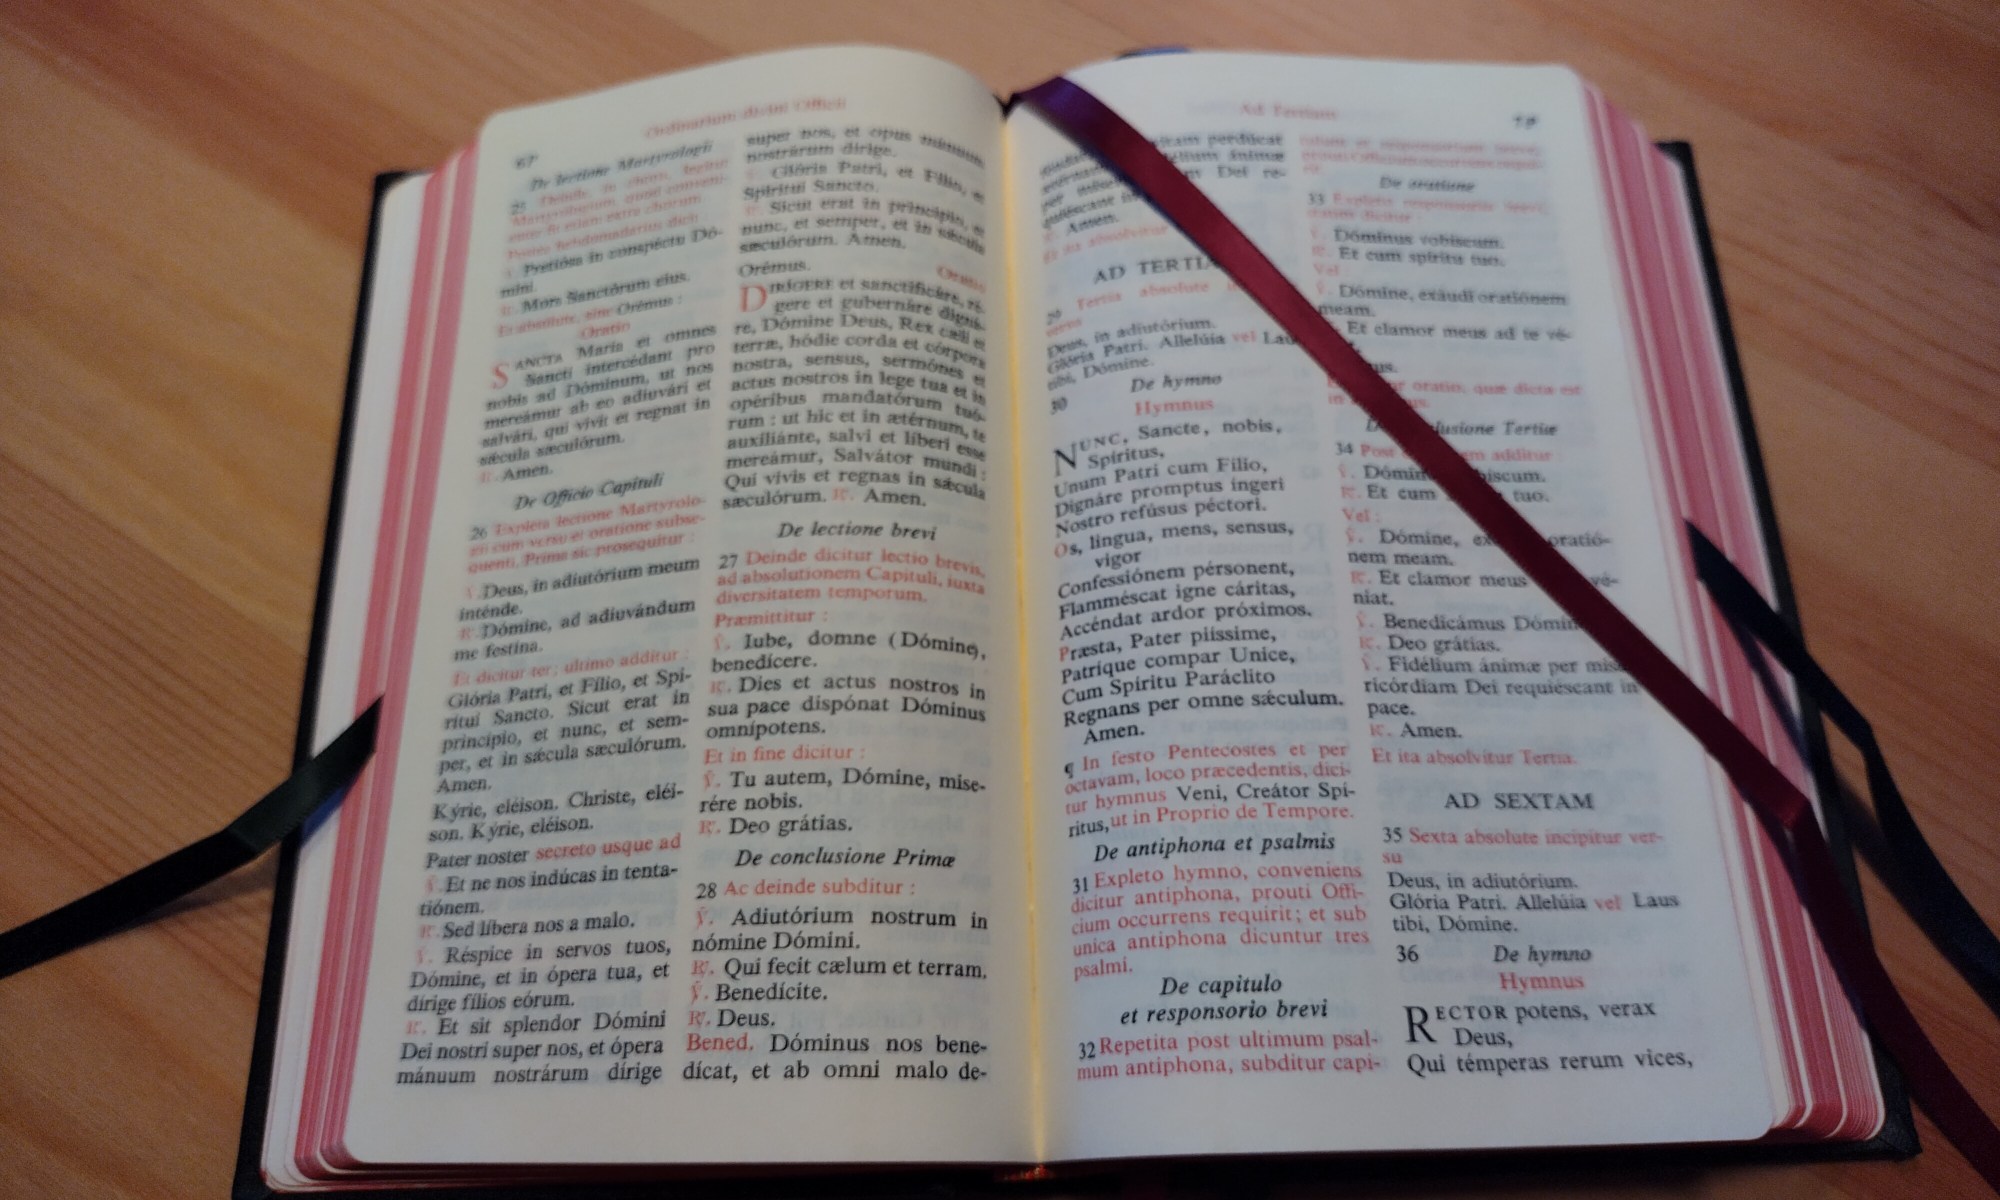 Ordinarium divini Officii
67
De lectione Martyrologii
25 Deinde, in choro, legitur
Martyrologium, quod conveni-
enter fit etiam extra chorum.
Postea hebdomadarius dicit :
℣. Pretiósa in conspéctu Dó-
mini.
℟. Mors Sanctórum eius.
Et absolute, sine Orémus :
Oratio
SANCTA María et omnes
Sancti intercédant pro
nobis ad Dóminum, ut nos
mereámur ab eo adiuvári et
salvári, qui vivit et regnat in
sǽcula sæculórum.
℟. Amen.
De Officio Capituli
26 Expleta lectione Martyrolo-
gii cum versu et oratione subse-
quenti, Prima sic prosequitur :
℣. Deus, in adiutórium meum
inténde.
℟. Dómine, ad adiuvándum
me festína.
Et dicitur ter; ultimo additur :
Glória Patri, et Fílio, et Spi-
rítui Sancto. Sicut erat in
princípio, et nunc, et sem-
per, et in sǽcula sæculórum.
Amen.
Kýrie, eléison. Christe, eléi-
son. Kýrie, eléison.
Pater noster secreto usque ad
℣. Et ne nos indúcas in tenta-
tiónem.
℟. Sed líbera nos a malo.
℣. Réspice in servos tuos,
Dómine, et in ópera tua, et
dírige fílios eórum.
℟. Et sit splendor Dómini
Dei nostri super nos, et ópera
mánuum nostrárum dírige
super nos, et opus mánuum
nostrárum dírige.
℣. Glória Patri, et Fílio, et
Spirítui Sancto.
℟. Sicut erat in princípio, et
nunc, et semper, et in sǽcula
sæculórum. Amen.
Orémus.
Oratio
DIRÍGERE et sanctificáre, ré-
gere et gubernáre digná-
re, Dómine Deus, Rex cæli et
terræ, hódie corda et córpora
nostra, sensus, sermónes et
actus nostros in lege tua et in
opéribus mandatórum tuó-
rum : ut hic et in ætérnum, te
auxiliánte, salvi et líberi esse
mereámur, Salvátor mundi :
Qui vivis et regnas in sǽcula
sæculórum. ℟. Amen.
De lectione brevi
27 Deinde dicitur lectio brevis,
ad absolutionem Capituli, iuxta
diversitatem temporum.
Præmittitur :
℣. Iube, domne (Dómine),
benedícere.
℟. Dies et actus nostros in
sua pace dispónat Dóminus
omnípotens.
Et in fine dicitur :
℣. Tu autem, Dómine, mise-
rére nobis.
℟. Deo grátias.
De conclusione Primæ
28 Ac deinde subditur :
℣. Adiutórium nostrum in
nómine Dómini.
℟. Qui fecit cælum et terram.
℣. Benedícite.
℟. Deus.
Bened. Dóminus nos bene-
dícat, et ab omni malo de-
Ad Tertiam
vitam perdúcat
ánimæ
Dei re-
℟. Amen.
Et ita absolvitur
AD TERTIA
29 Tertia absolute
versu
Deus, in adiutórium.
Glória Patri. Allelúia vel Lau
tibi, Dómine.
De hymno
30
Hymnus
NUNC, Sancte, nobis,
Spíritus,
Unum Patri cum Fílio,
Dignáre promptus íngeri
Nostro refúsus péctori.
Os, lingua, mens, sensus,
vigor
Confessiónem pérsonent,
Flamméscat igne cáritas,
Accéndat ardor próximos.
Præsta, Pater piíssime,
Patríque compar Unice,
Cum Spíritu Paráclito
Regnans per omne sǽculum.
Amen.
¶ In festo Pentecostes et per
octavam, loco præcedentis, dici-
tur hymnus Veni, Creátor Spí-
ritus, ut in Proprio de Tempore.
De antiphona et psalmis
31 Expleto hymno, conveniens
dicitur antiphona, prouti Offi-
cium occurrens requirit; et sub
unica antiphona dicuntur tres
psalmi.
De capitulo
et responsorio brevi
32 Repetita post ultimum psal-
mum antiphona, subditur capi-
De oratione
33 Expleto responsorio brevi,
statim dicitur :
℣. Dóminus vobíscum.
℟. Et cum spíritu tuo.
Vel :
℣. Dómine, exáudi oratiónem
meam.
Et clamor meus ad te vé-
us.
oratio, quæ dicta est
in
usione Tertiæ
34 Post em additur :
℣. Dómin bíscum.
℟. Et cum tuo.
Vel :
℣. Dómine, ex oratió-
nem meam.
℟. Et clamor meus vé-
niat.
℣. Benedicámus Dómin
℟. Deo grátias.
℣. Fidélium ánimæ per mise
ricórdiam Dei requiéscant in
pace.
℟. Amen.
Et ita absolvitur Tertia.
AD SEXTAM
35 Sexta absolute incipitur ver-
su
Deus, in adiutórium.
Glória Patri. Allelúia vel Laus
tibi, Dómine.
36 De hymno
Hymnus
RECTOR potens, verax
Deus,
Qui témperas rerum vices,